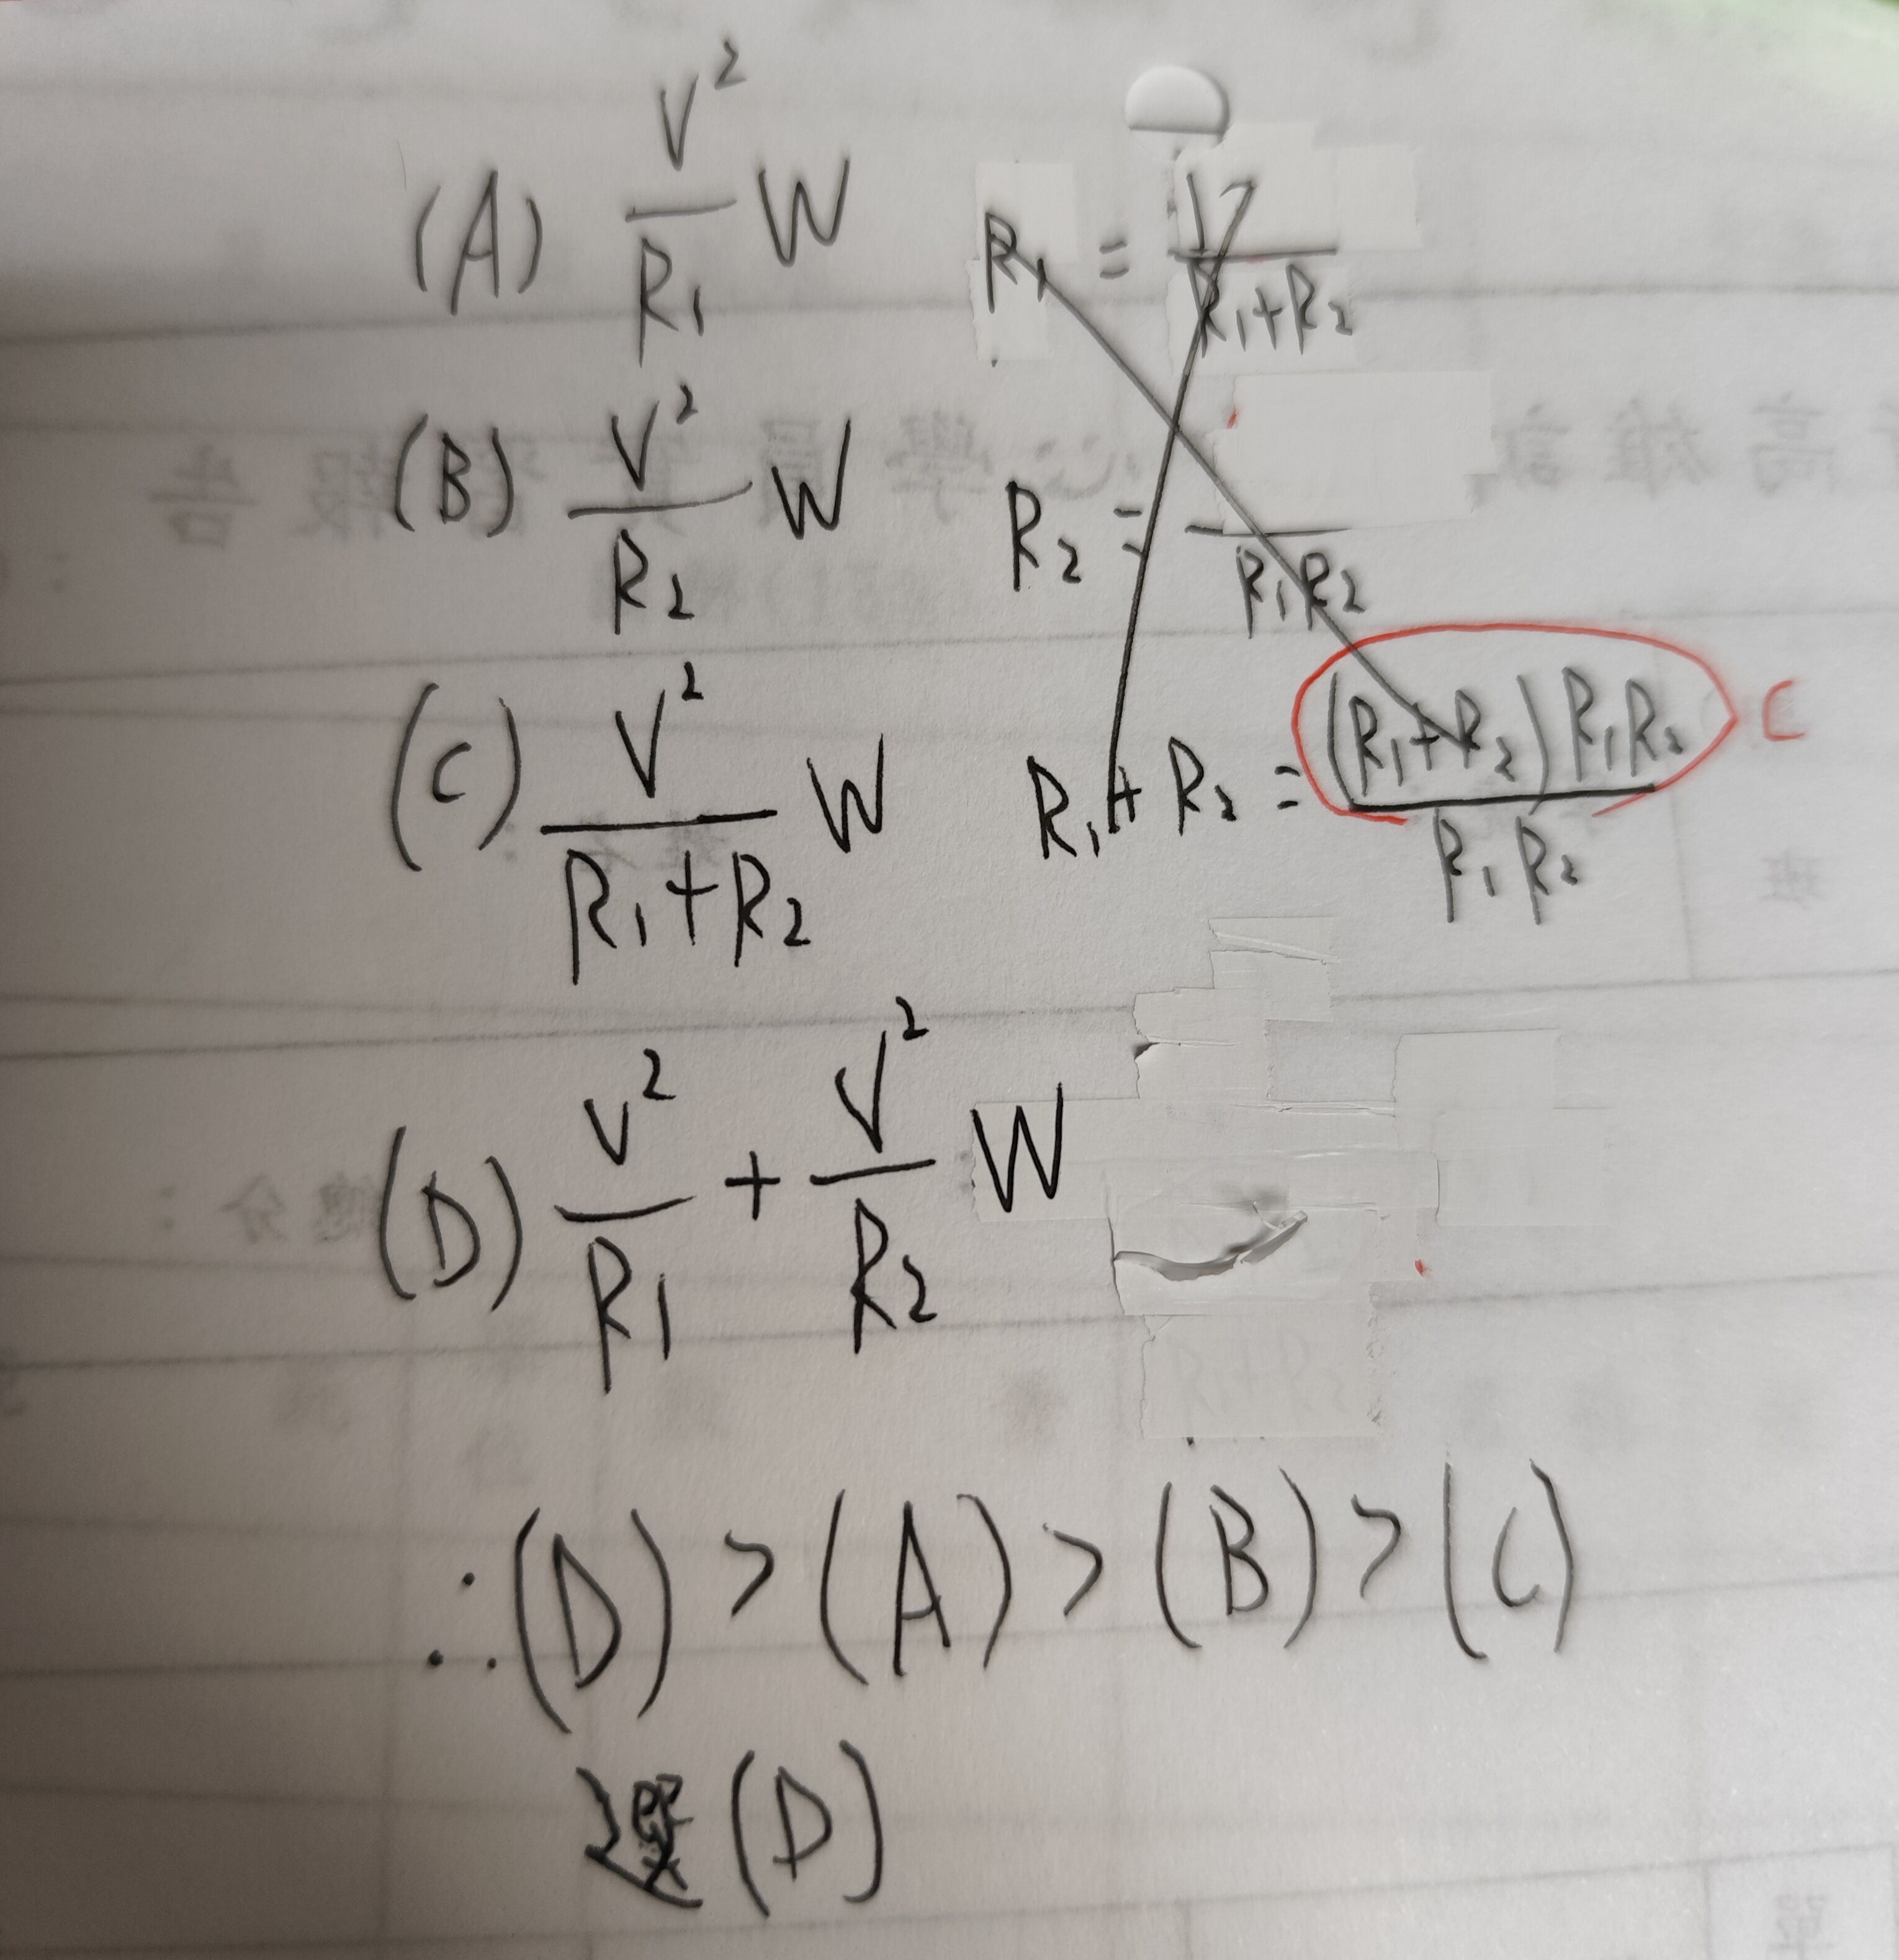 (A) V²/R₁ W
R₁ = V/R₁+R₂
(B) V²/R₂ W
R₂ = /R₁R₂
(C) V²/R₁+R₂ W
R₁+R₂ = (R₁+R₂)R₁R₂/R₁R₂ C
(D) V²/R₁ + V²/R₂ W
∴(D) > (A) > (B) > (C)
選(D)